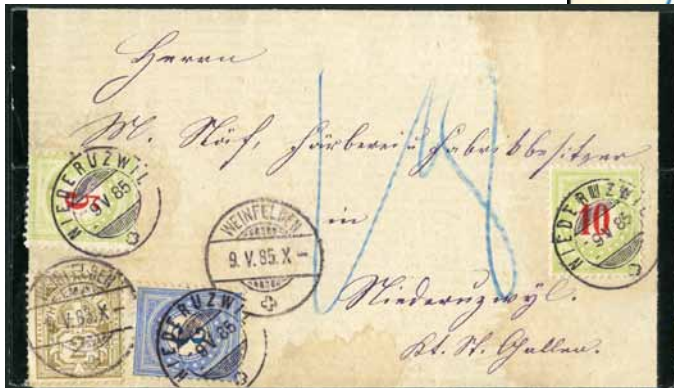 Herrn
M. Näf, Färberei u Fabrikbesitzer
in
Niederuzwyl.
Kt. St. Gallen.
18
NIEDERUZWIL
9 V 85
5
WEINFELDEN
9. V. 85. X –
NIEDERUZWIL
9 V 85
10
WEINFELDEN
9. V. 85. X –
2
NIEDERUZWIL
9 V 85